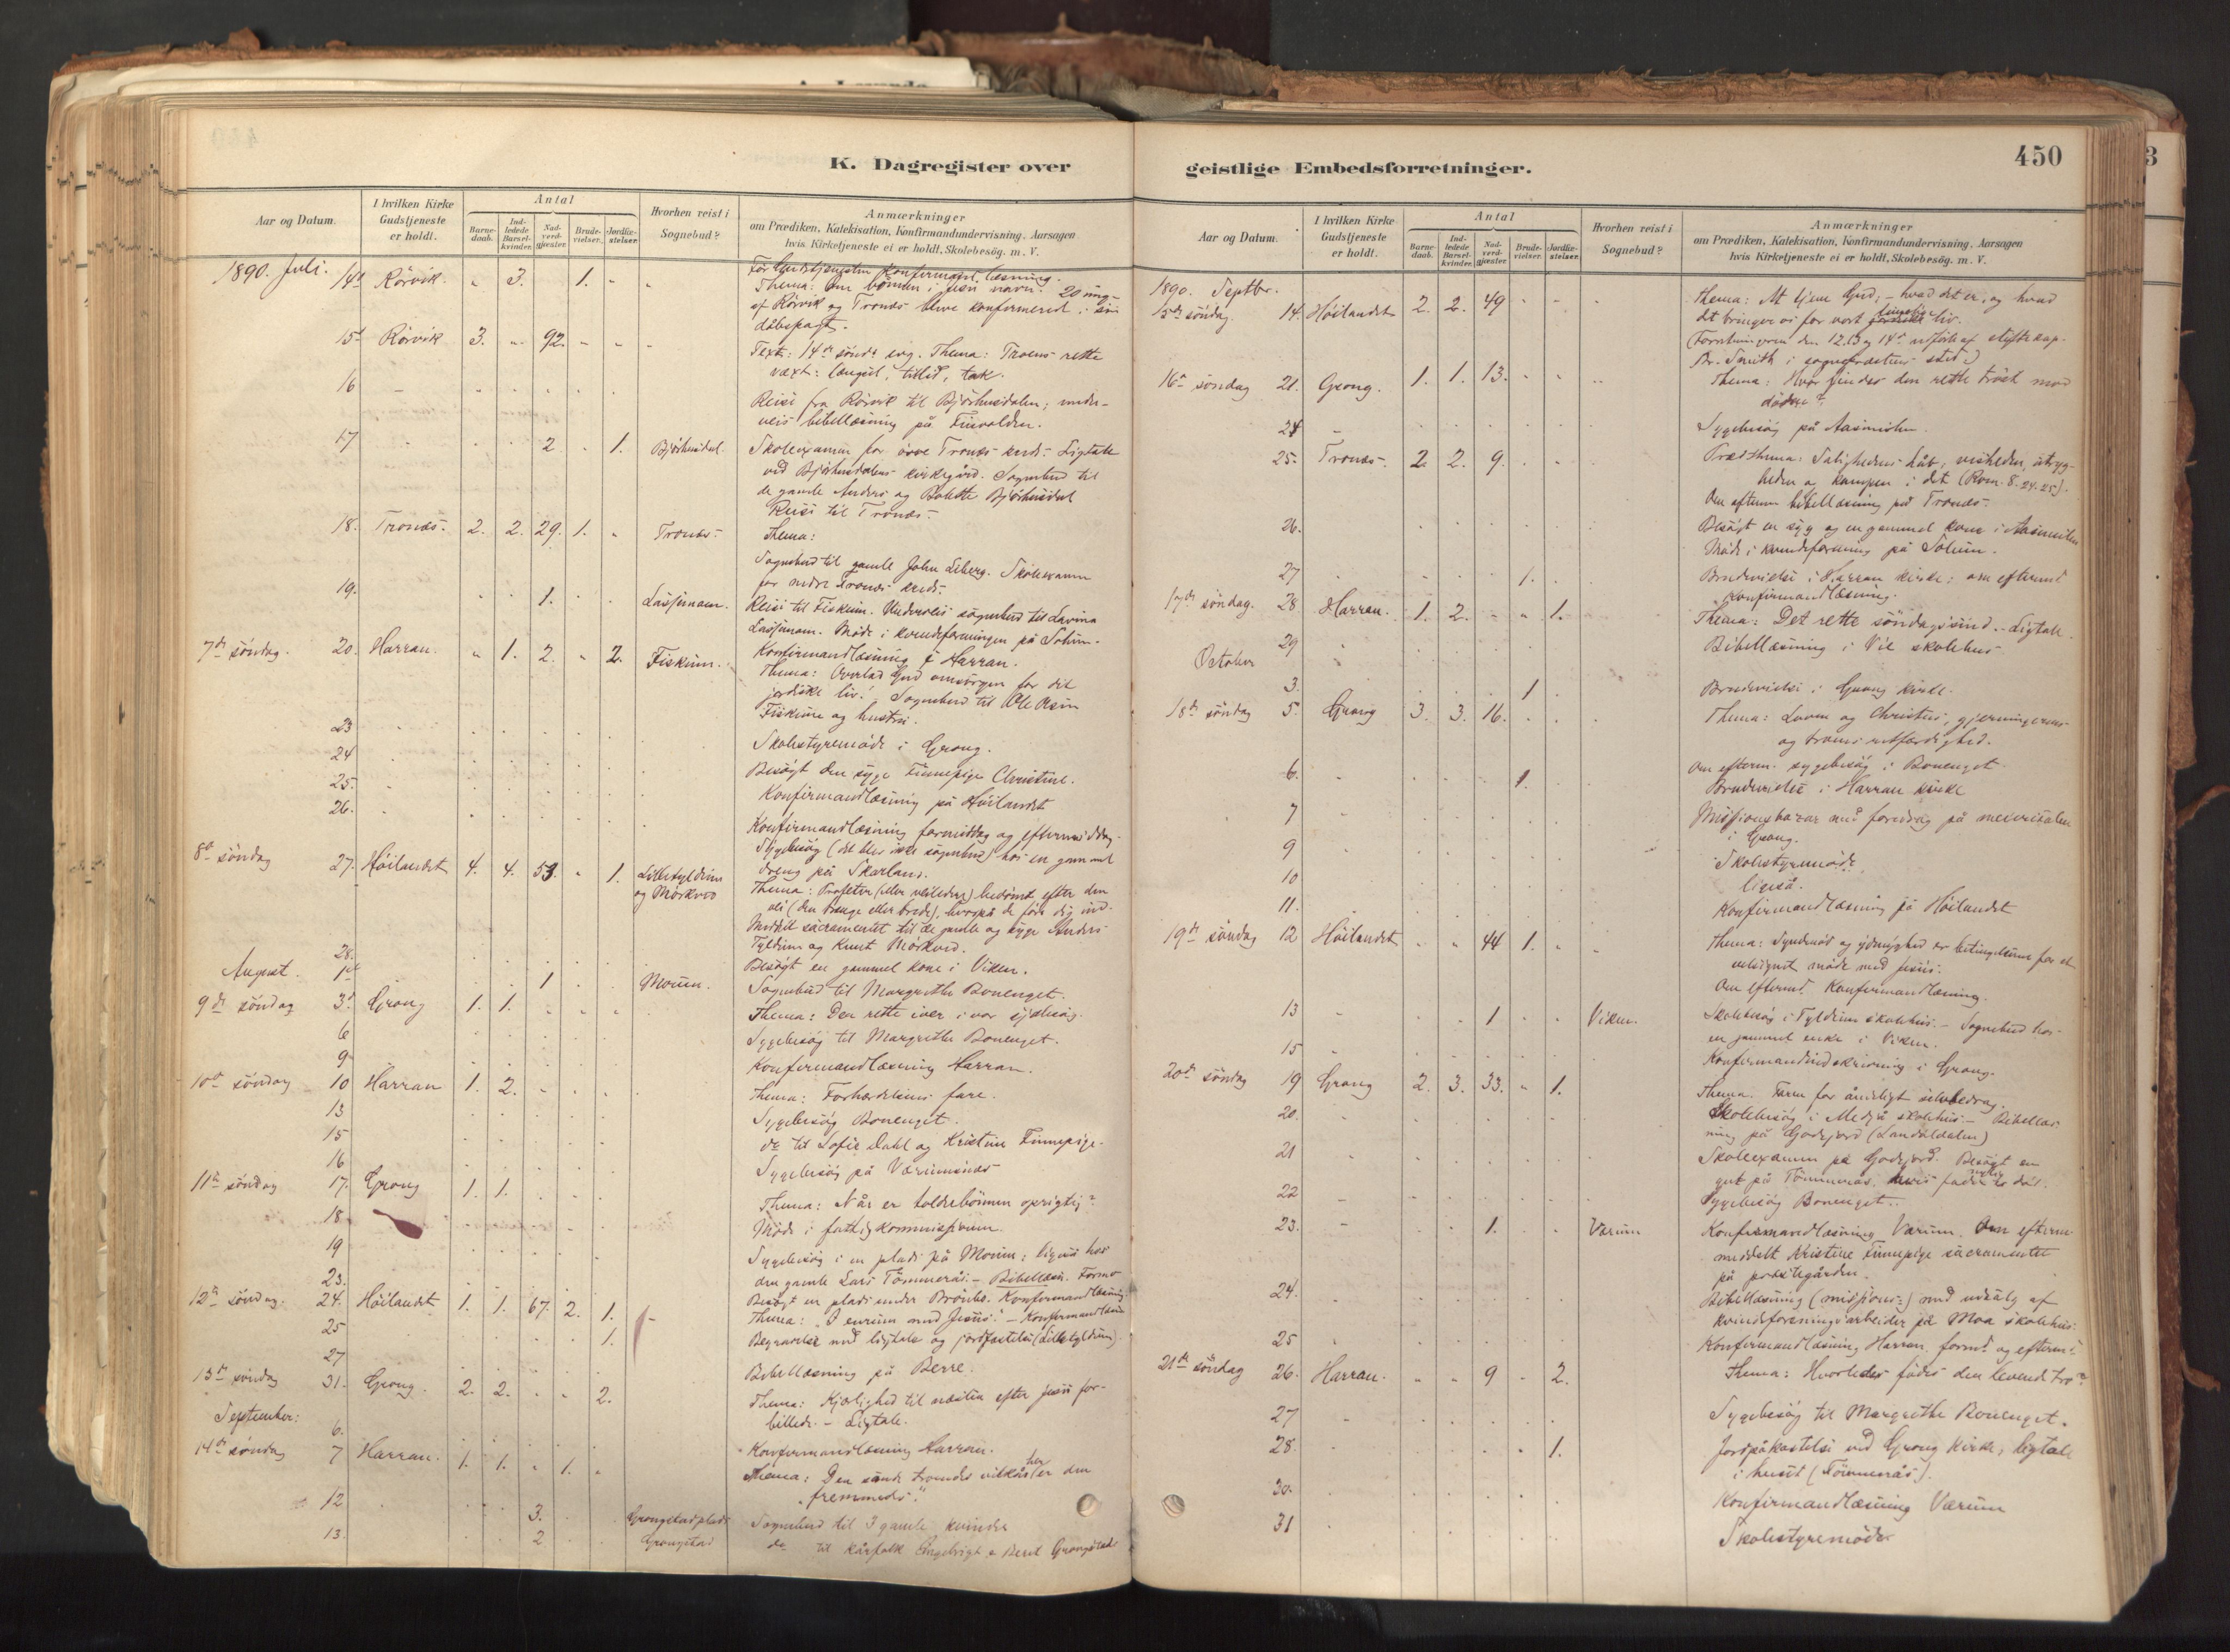 K. Dagregister over
Aar og Datum.
I hvilken Kirke Gudstjeneste er holdt.
Antal
Barne-daab.
Ind-ledede Barsel-kvinder.
Nad-verd-gjæster.
Brude-vielser.
Jordfæ-stelser.
Hvorhen reist i Sognebud?
Anmærkninger
om Prædiken, Katekisation, Konfirmandundervisning. Aarsagen
hvis Kirketjeneste ei er holdt, Skolebesög. m. V.
1890. Juli. 14d Rörvik. " 3. 1. " "
Thema: Om bönnen i Jesu navn. 20 ung-
af Rörvik og Tronæs bleve konfirmered i sin
dåbspagt.
15d Rörvik 3. " 92. " " "
Text: 14de sönd. evg. Thema: Troens rette
væxt: længsel, tillid, tak.
16
Reise fra Rörvik til Bjørhusdalen; under-
veis bibellæsning på Finvolden.
17 2 1. Bjørhusdal.
Skoleexamen for övre Tronæs kreds. Ligtale
ved Bjørhusdalens kirkegård. Sognebud til
de gamle Anders og Bolette Bjørhusdal
Reise til Tronæs.
18. Tronæs. 2. 2. 29. 1. " Tronæs.
Thema:
Sognebud til gamle John Liberg. Skoleexamen
for nedre Tronæs kreds.
19. 1. Lassemoen.
Reise til Fiskum. Underveis sognebud til Lavina
Lassemoen. Møde i kvindeforeningen på Solum.
7de söndag. 20. Harran. " 1. 2. " 2. Fiskum.
Konfirmandlæsning i Harran.
Thema: Overlad Gud omsorgen for dit
jordiske liv! Sognebud til Ole Asin
Fiskum og hustru.
23
Skolestyremöde i Grong.
24
Besögt den syge Finnepige Christine.
25.
Konfirmandlæsning på Höilandet
26.
Konfirmandlæsning formiddag og eftermiddag.
Sygebesög (det blev ikke sognebud) hos en gammel
dreng på Skarland.
8de söndag 27. Höilandet 4. 4. 53. " 1. Lilletyldum og Mörkved
Thema: Profeter (eller veiledere) bedömt efter den
vei (den trange eller brede), hvorpå de före dig ind.
Meddelt sacramentet til de gamle og syge Anders
Tyldum og Knut Mörkved.
28.
Besögt en gammel kone i Viken.
August. 1ste 1 Moum.
Sognebud til Margrethe Bonenget.
9de söndag 3d Grong 1. 1. " " "
Thema: Den rette iver i vor
6
Sygebesög til Margrethe Bonenget.
9
Konfirmandlæsning Harran.
10de söndag 10 Harran 1. 2.
Thema: Forhærdelsens fare.
13
Sygebesög Bonenget.
15
do til Sofie Dahl og Kristine Finnepige.
16
Sygebesög på Værumsnæs
11te söndag 17. Grong 1. 1.
Thema: Når er tolderbönnen oprigtig?
18
Möde i fattigkommissionen.
19
Sygebesög i en plads på Moum; ligeså hos
den gamle Lars Tömmerås. – Bibellæsn. Formo
23.
Besögt en plads under Brönbo. Konfirmandlæsning
12te söndag. 24. Höilandet 1. 1. 67. 2. 1.
Thema: "I enrum med Jesus." – Konfirmandlæsn
25 1.
Begravelse med ligtale og jordfæstelse (Lilletyldum)
27
Bibellæsning på Berre.
13de söndag 31. Grong. 2. 2. " " 2.
Thema: Kjærlighed til næsten efter Jesu for-
billede. – Ligtale.
September: 6.
Konfirmandlæsning Harran.
14de söndag 7 Harran. 1. 1. " 1. "
Thema: Den sande troendes vilkår her er den
"fremmedes."
12 3. Grongstadplads
Sognebud til 3 gamle kvinder
13. 2 Grongstad
do til kårfolk Engelbrigt & Beret Grongstad
geistlige Embedsforretninger.
450
Aar og Datum.
I hvilken Kirke Gudstjeneste er holdt.
Antal
Barne-daab.
Ind-ledede Barsel-kvinder.
Nad-verd-gjæster.
Brude-vielser.
Jordfæ-stelser.
Hvorhen reist i Sognebud?
Anmærkninger
om Prædiken, Katekisation, Konfirmandundervisning. Aarsagen
hvis Kirketjeneste ei er holdt, Skolebesög. m. V.
1890. Septbr.
15de söndag. 14. Höilandet 2. 2. 49
Thema: At tjene Gud; – hvad det er, og hvad
det bringer os for vort liv.
(Forretningerne den 12. 13 og 14de udfört af stiftskap.
Br. Smith i sognepræstens sted.)
16de söndag 21. Grong. 1. 1. 13.
Thema: Hvor findes den rette tröst mod
döden?
24
Sygebesög på Aasmoen.
25. Tronæs. 2. 2. 9.
Præd.thema: Salighedens håb; visheden, utryg-
heden og kampen i det (Rom. 8. 24. 25).
Om efterm bibellæsning på Tronæs.
26.
Besögt en syg og en gammel kone i Aasmulen
Möde i kvindeforening på Solum.
27 1.
Brudevielse i Harran kirke; om eftermd
Konfirmandlæsning.
17de söndag. 28 Harran. 1. 2. " " 1.
Thema: Det rette söndagssind. – Ligtale.
29
Bibellæsning i Vie skolehus
October 3. 1
Brudevielse i Grong kirke.
18de söndag 5. Grong 3. 3. 16.
Thema: Loven og Christus, gjerningernes
og troens retfærdighed.
Om efterm. sygebesög i Bonenget.
6. 1.
Brudevielse i Harran kirke
7
Missionsbazar med foredrag på meierisalen
i Grong.
9
Skolestyremöde.
10
ligeså.
11.
Konfirmandlæsning på Höilandet
19de söndag 12 Höilandet " " 44 1. " "
Thema: Syndenöd og ydmyghed er betingelserne for et
velsignet möde med Jesus.
Om eftermd. Konfirmandlæsning.
13 1 Viken.
Skolebesög i Tyldum skolehus. – Sognebud hos
en gammel enke i Viken.
15
Konfirmandindskrivning i Grong.
20de söndag 19 Grong 2. 3. 33. " 1.
Thema. Faren for åndeligt selvbedrag.
20.
Skolebesög i Medjå skolehus. – Bibellæs-
ning på Godejord (Sandöldalen)
21
Skoleexamen på Godejord. Besögt en
gut på Tömmerås, hvis fader nylig er död.
22
Sygebesög Bonenget.
23. 1. Værum
Konfirmandlæsning Værum. Om efterm
meddelt Kristine Finnepige sacramentet
på præstegården.
24.
Bibellæsning (missions-) med udsalg af
kvindeforeningsarbeider på Moa skolehus.
25
Konfirmandlæsning Harran, formd og efterm
21de söndag 26. Harran. " " 9 " 2.
Thema: Hvorledes födes den levende tro?
27
Sygebesög til Margrethe Bonenget.
28. 1.
Jordpåkastelse ved Grong kirke, ligtale
i huset (Tömmerås).
30.
Konfirmandlæsning Værum
31
Skolestyremöde